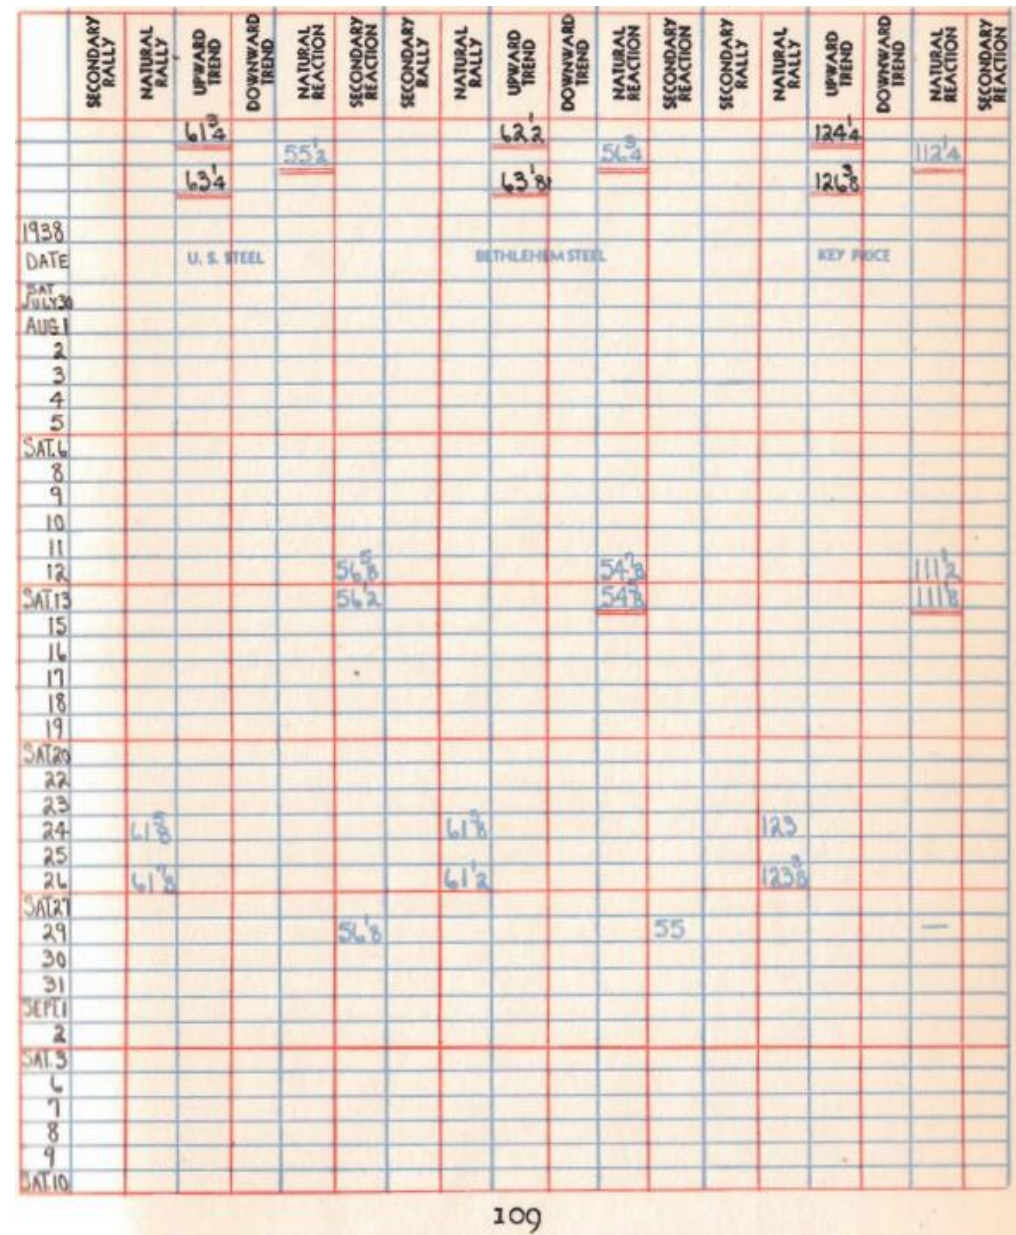 SECONDARY RALLY NATURAL RALLY UPWARD TREND DOWNWARD TREND NATURAL REACTION SECONDARY REACTION SECONDARY RALLY NATURAL RALLY UPWARD TREND DOWNWARD TREND NATURAL REACTION SECONDARY REACTION SECONDARY RALLY NATURAL RALLY UPWARD TREND DOWNWARD TREND NATURAL REACTION SECONDARY REACTION
61 3/4 62 1/2 124 1/4
55 1/2 56 3/4 112 1/4
63 1/4 63 1/8 126 3/8
1938
DATE U. S. STEEL BETHLEHEM STEEL KEY PRICE
SAT
JULY 30
AUG. 1
2
3
4
5
SAT. 6
8
9
10
11
12 56 5/8 54 7/8 111 1/2
SAT. 13 56 1/2 54 5/8 111 1/8
15
16
17
18
19
SAT. 20
22
23
24 61 5/8 61 3/8 123
25
26 61 7/8 61 1/2 123 3/8
SAT. 27
29 56 1/8 55 —
30
31
SEPT. 1
2
SAT. 3
6
7
8
9
SAT. 10
109